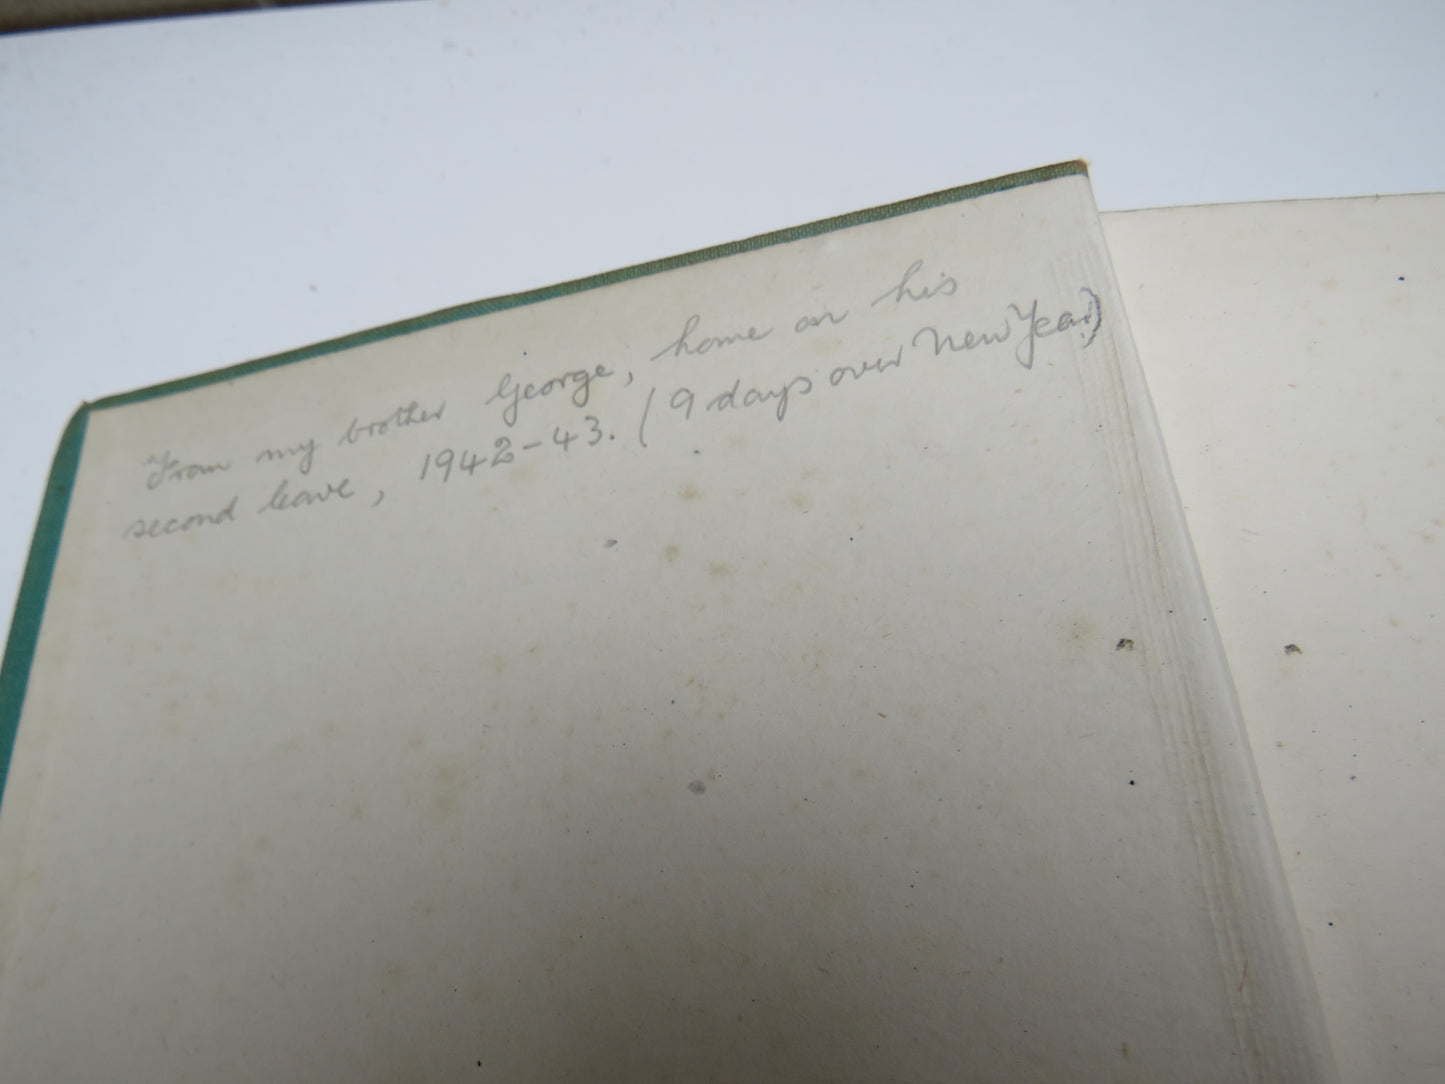 From my brother George, home on his
second leave, 1942-43. (9 days over New Year)